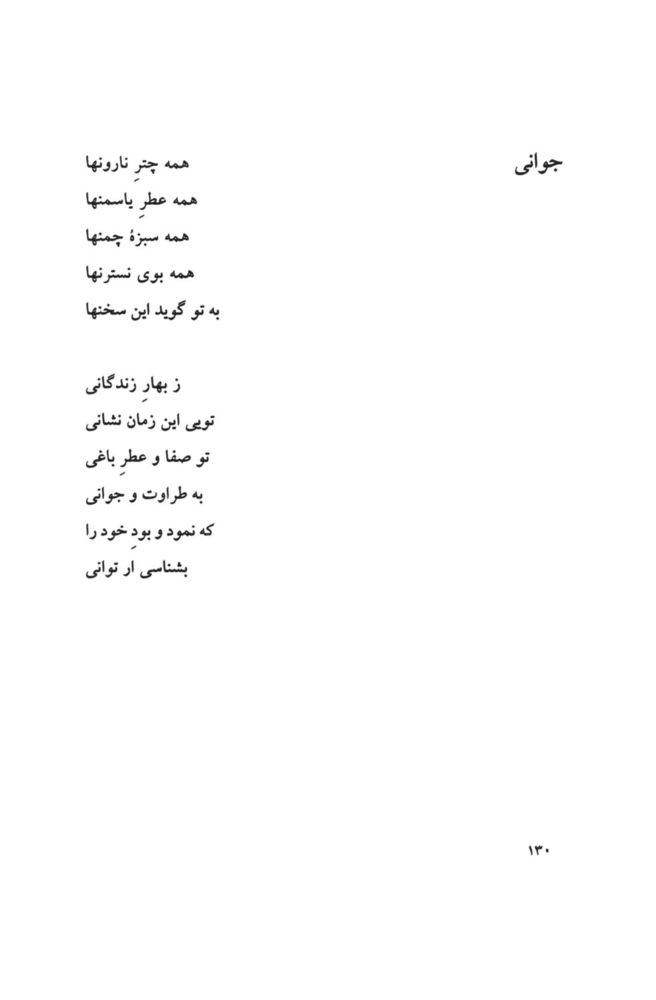 جوانی
همه چترِ نارونها
همه عطرِ یاسمنها
همه سبزهٔ چمنها
همه بوی نسترنها
به تو گوید این سخنها
ز بهارِ زندگانی
تویی این زمان نشانی
تو صفا و عطرِ باغی
به طراوت و جوانی
که نمود و بودِ خود را
بشناسی ار توانی
۱۳۰